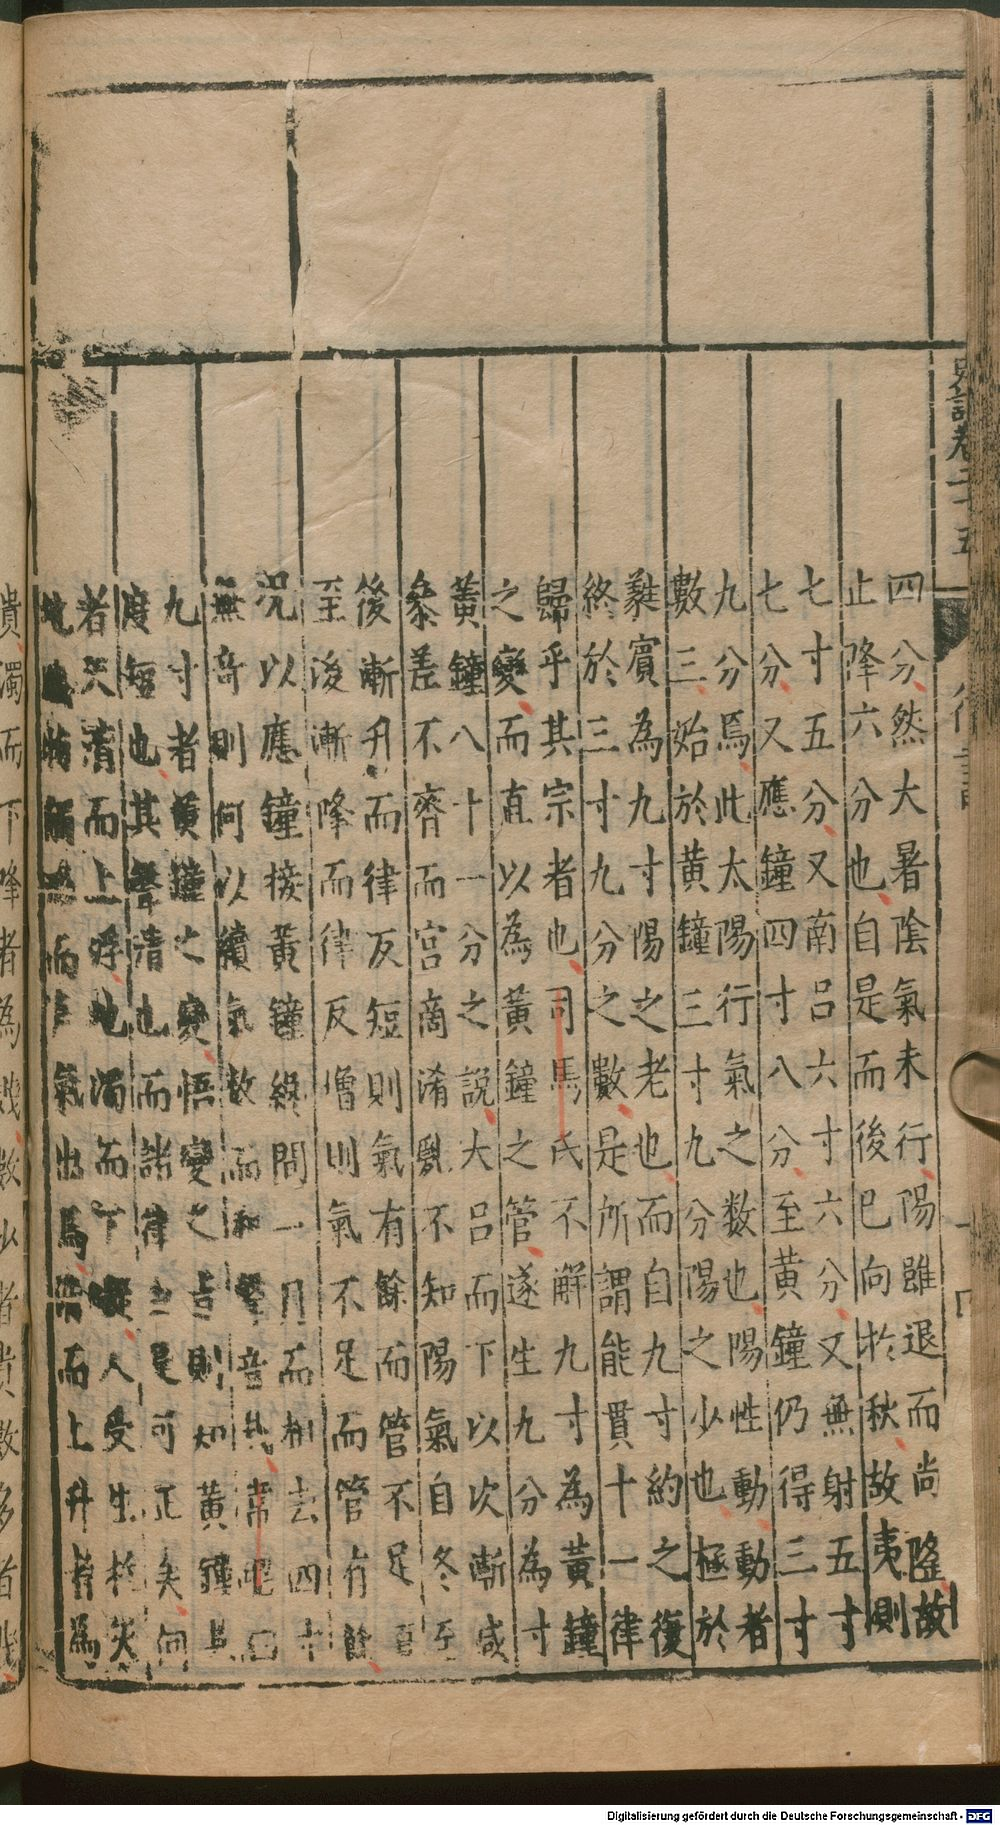 史記卷二十五
律書
四分然大暑陰氣未行陽雖退而尚隆故
止降六分也自是而後已向於秋故夷則
七寸五分又南呂六寸六分又無射五寸
七分又應鐘四寸八分至黃鐘仍得三寸
九分焉此太陽行氣之数也陽性動動者
數三始於黃鐘三寸九分陽之少也極於
蕤賓為九寸陽之老也而自九寸約之復
終於三寸九分之數是所謂能貫十一律
歸乎其宗者也司馬氏不解九寸為黃鐘
之變而直以為黃鐘之管遂生九分為寸
黃鐘八十一分之說大呂而下以次漸咸
叅差不齊而宮商淆亂不知陽氣自冬至
後漸升而律反短則氣有餘而管不足
至後漸降而律反增則氣不足而管有餘
况以應鐘接黃鐘終間一月而相去四寸
無奇則何以續氣数而和聲音其常也曰
九寸者黃鐘之變悟變之旨則知黃鐘其
度短也其聲清也而諸律之是可正矣何
者天清而上浮地濁而下凝人受生於天
地氣出焉清而上升者為
貴濁而下降者為賤数少者貴数多者賤
Digitalisierung gefördert durch die Deutsche Forschungsgemeinschaft - DFG